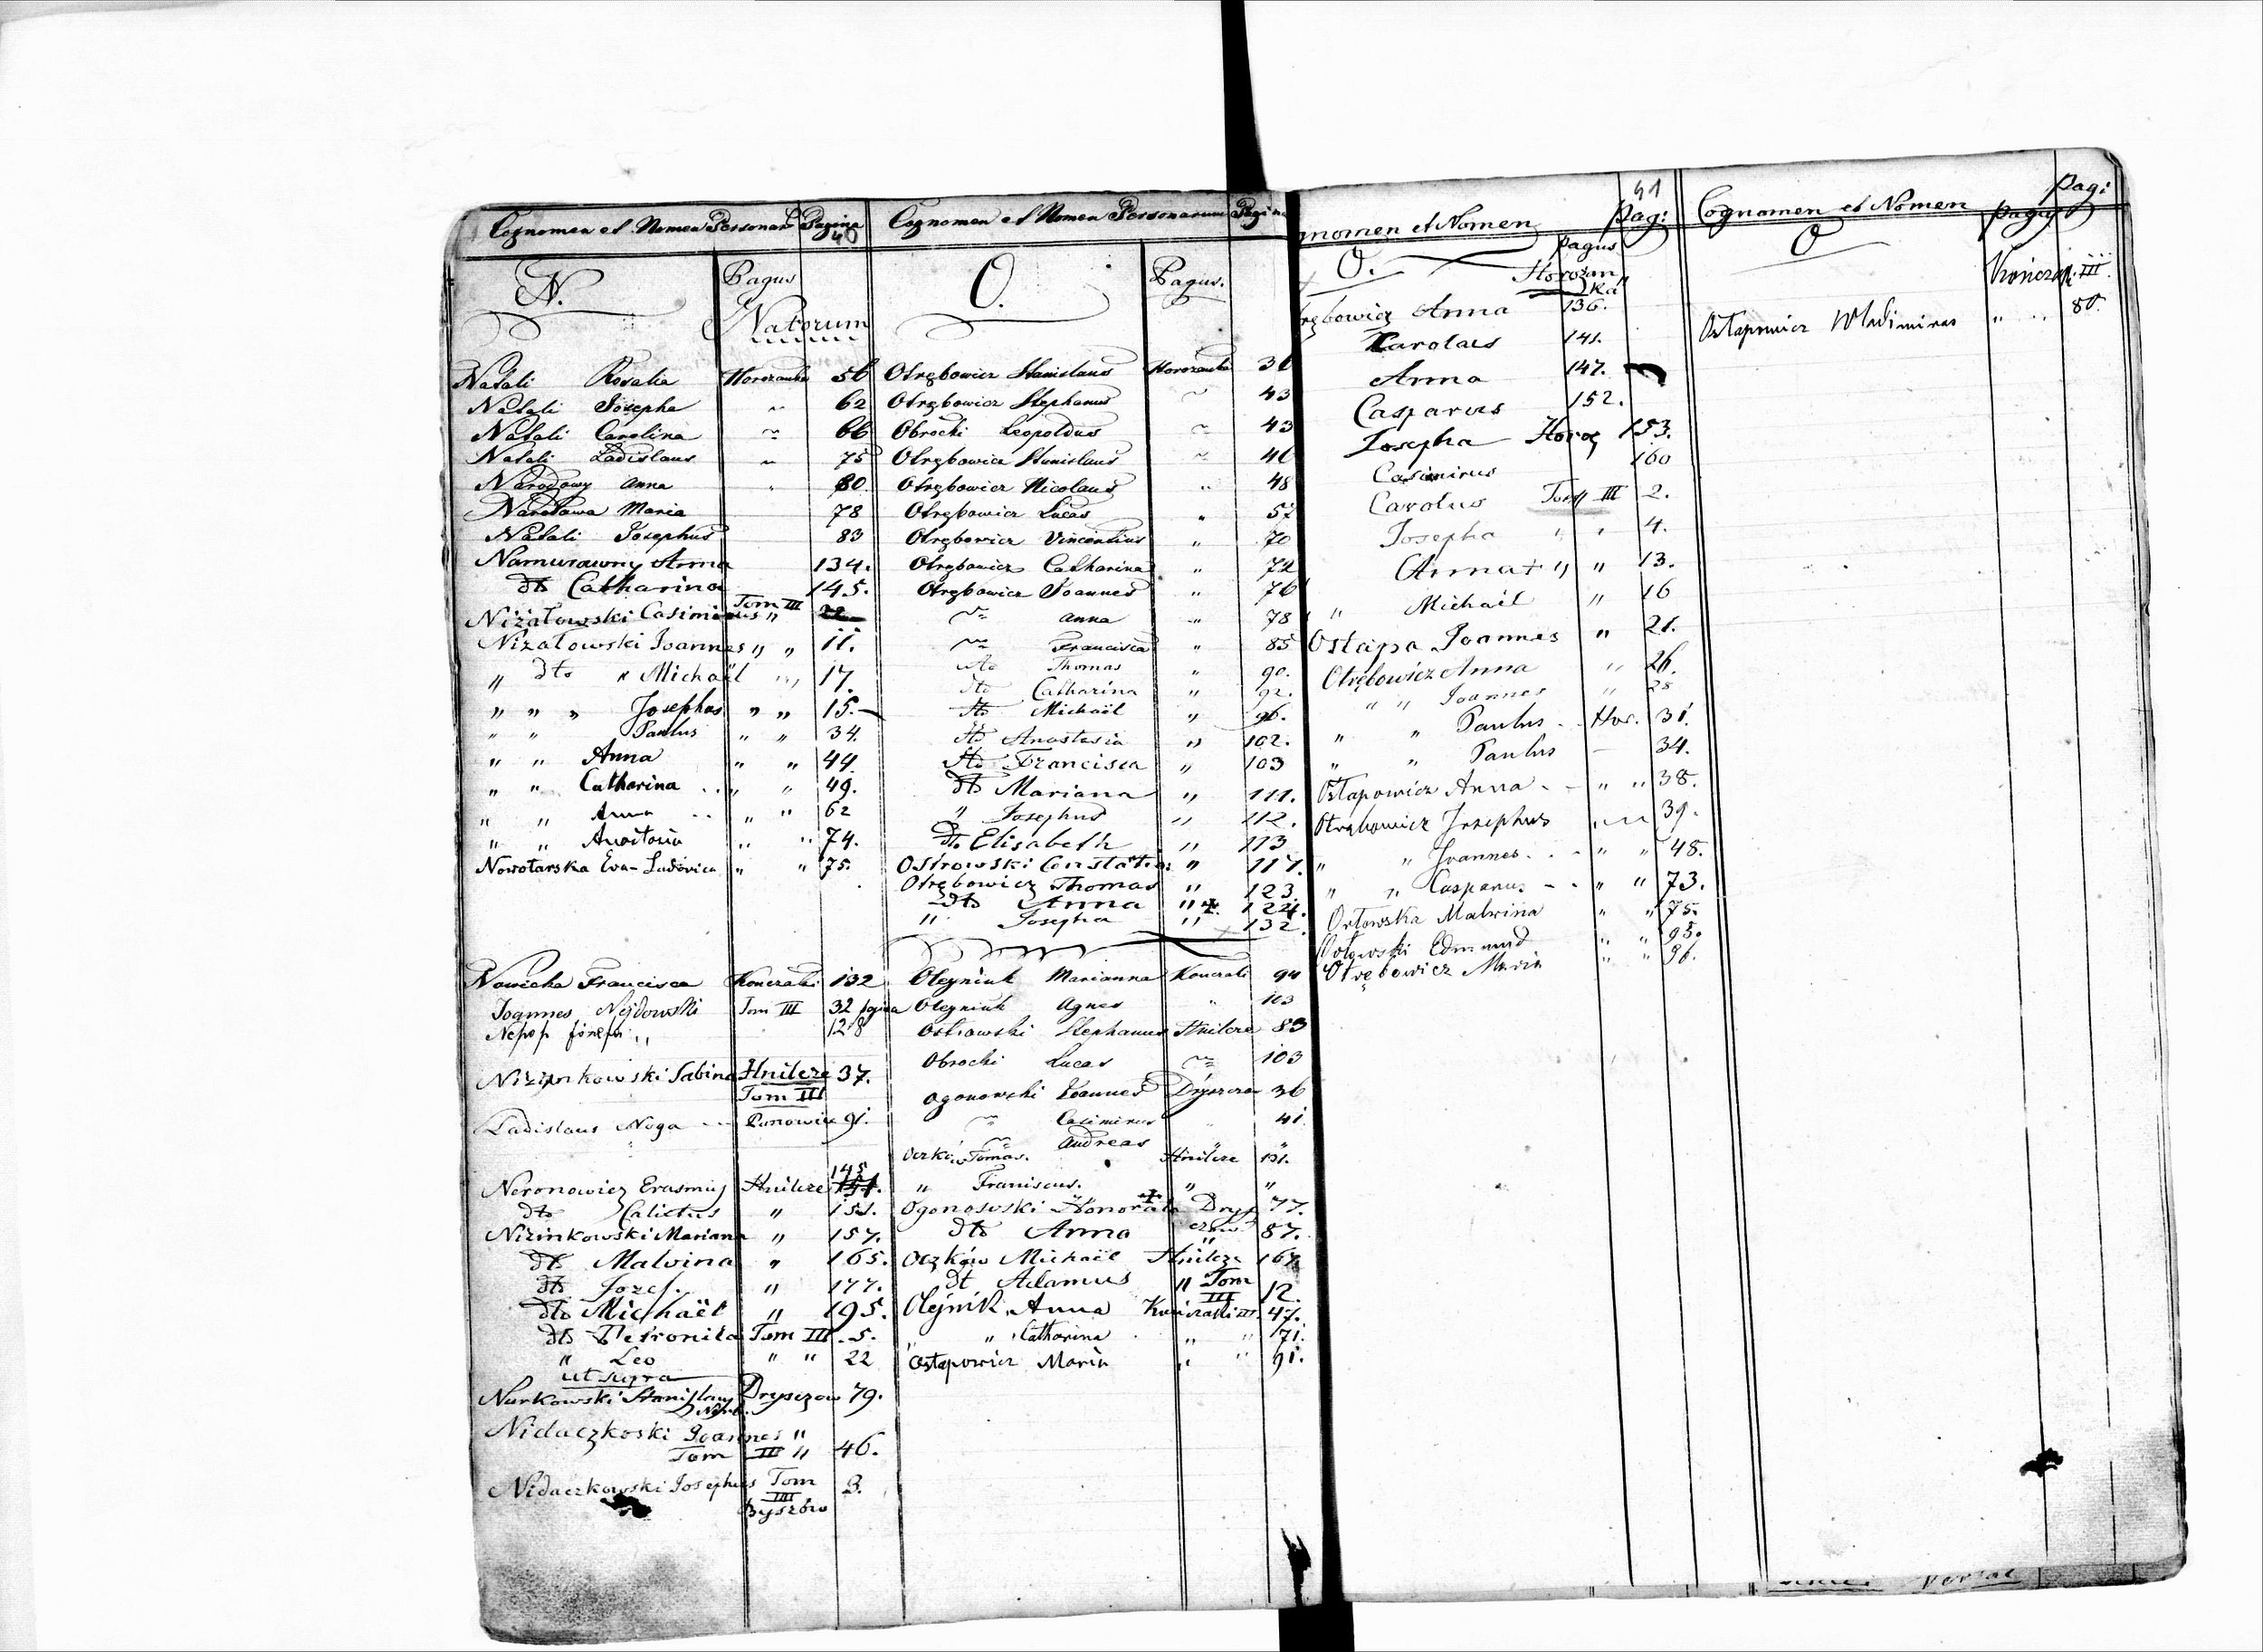 Cognomen et Nomen Personar Pagina
40
N. Pagus
Natorum
Natali Rosalia Horozanka 56
Natali Josepha ~ 62
Natali Carolina ~ 66
Natali Ladislaus ~ 75
Narodowy Anna " 80
Narodawa Maria 78
Natali Josephus 83
Namurawny Anna 134.
dto Catharina 145.
Niżałowski Casimirus Tom III " 22
Niżałowski Joannes " " 11.
" dto " Michaël " " 17.
" " " Josephus " " 15.
" " Paulus " " 34.
" " Anna " " 44.
" " Catharina . . " " 49.
" " Anna . . " " 62
" " Anastasia " " 74.
Nowotarska Eva-Ludovica " " 75.
Nowicka Francisca Konczaki 132
Joannes Nejdowski Tom III 32 pagina
Nepop Josefa " 128
Nizinkowski Sabina Hnilcze 37.
Tom III
Ladislaus Noga --- Panowice 91.
Neronowicz Erasmus Hnilcze 145 151.
dto Calictus " 151.
Nizinkowski Mariana " 157.
dto Malvina " 165.
dto Jozef. " 177.
dto Michaël " 195.
dto Petronila Tom III . 5.
" Leo " " 22
ut supra
Nurkowski Stanislaus Dryszczow 79.
Nidaczkoski Joannes "
Tom III " 46.
Nidaczkowski Josephus Tom 3.
III
Byszów
Cognomen et Nomen Personarum Pagina
O. Pagus.
Otrębowicz Stanislaus Horozanka 36
Otrębowicz Stephanus ~ 43
Obrocki Leopoldus ~ 43
Otrębowicz Stanislaus ~ 46
Otrębowicz Nicolaus " 48
Otrębowicz Lucas " 52
Otrębowicz Vincentius " 70
Otrębowicz Catharina " 72
Otrębowicz Joannes " 76
~ Anna " 78
~ Francisca " 85
dto Thomas " 90.
dto Catharina " 92.
dto Michaël " 96.
dto Anastasia " 102.
dto Francisca " 103
dto Mariana " 111.
" Josephus " 112.
dto Elisabeth " 113
Ostrowski Constatin " 117.
Otrębowicz Thomas " 123.
dto Anna " + 124.
" Josepha " 132.
Olejniuk Marianna Konczaki 94
Olejniuk Agnes " 103
Ostrowski Stephanus Hnilcze 83
Obrocki Lucas ~ 103
Ogonowski Joannes Dryszczow 36
~ Casimirus " 41
~ Andreas "
Oczków Tomas. Hnilcze 131.
" Franiscus. " "
Ogonowski Honorata + Drysz 77.
dto Anna czow " 87.
Oczków Michaël Hnilcze 167
dt Adamus " Tom III 12.
Olejnik Anna Kończaki III 47.
" " Catharina " " 71.
Ostapowicz Maria " " 91.
gnomen et Nomen Pagi:
41
O. Pagus
Horozan
ka
rębowicz Anna 136.
Carolus 141.
Anna 147.
Casparus 152.
Josepha Horoż 153.
Casimirus 160
Carolus Tom III 2.
Josepha " " 4.
Anna + " " 13.
" Michaël " 16
Ostapa Joannes " 21.
Otrębowicz Anna " 26.
" " Joannes " 28
" " Paulus - . Hor. 31.
" " Paulus — 34.
Ostapowicz Anna - - " " 38.
Otrębowicz Josephus " " 39.
" " Joannes . . - " " 48.
" " Casparus - . " " 73.
Orłowska Malwina " " 75.
Orłowski Edmund " " 93.
Otrębowicz Maria " " 96.
Cognomen et Nomen Pagus Pagi:
O Kończaki. III.
Ostapowicz Wladimirus " " 80.